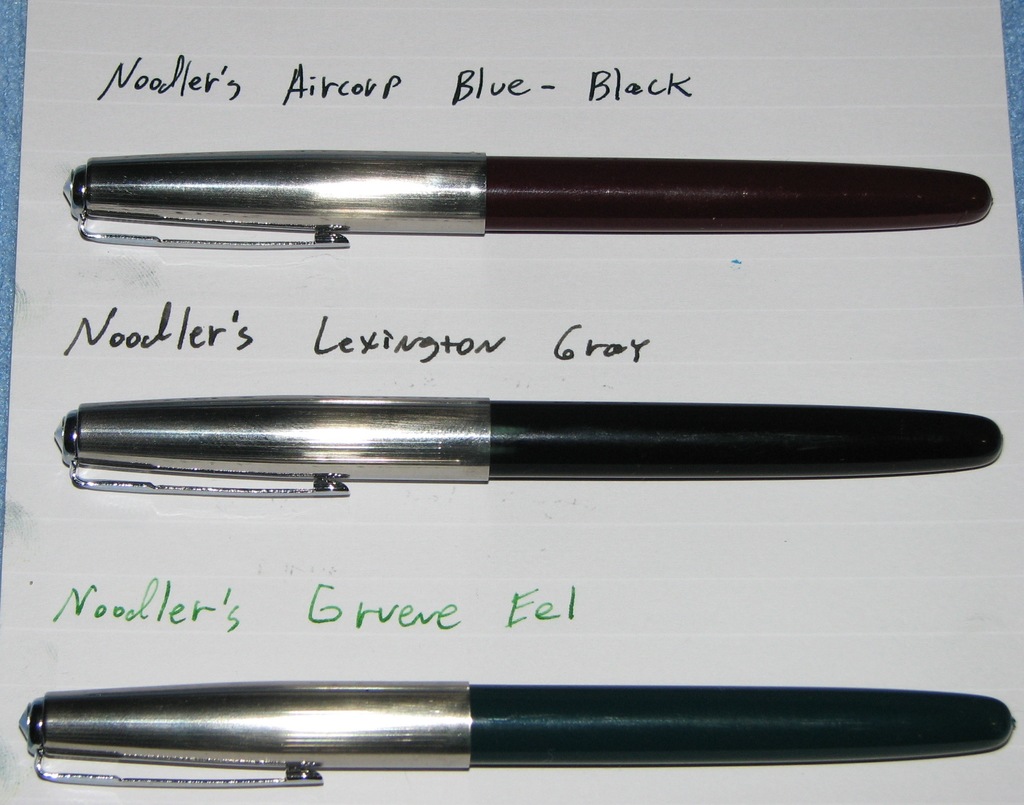 Noodler's Aircorp Blue-Black
Noodler's Lexington Gray
Noodler's Gruene Eel